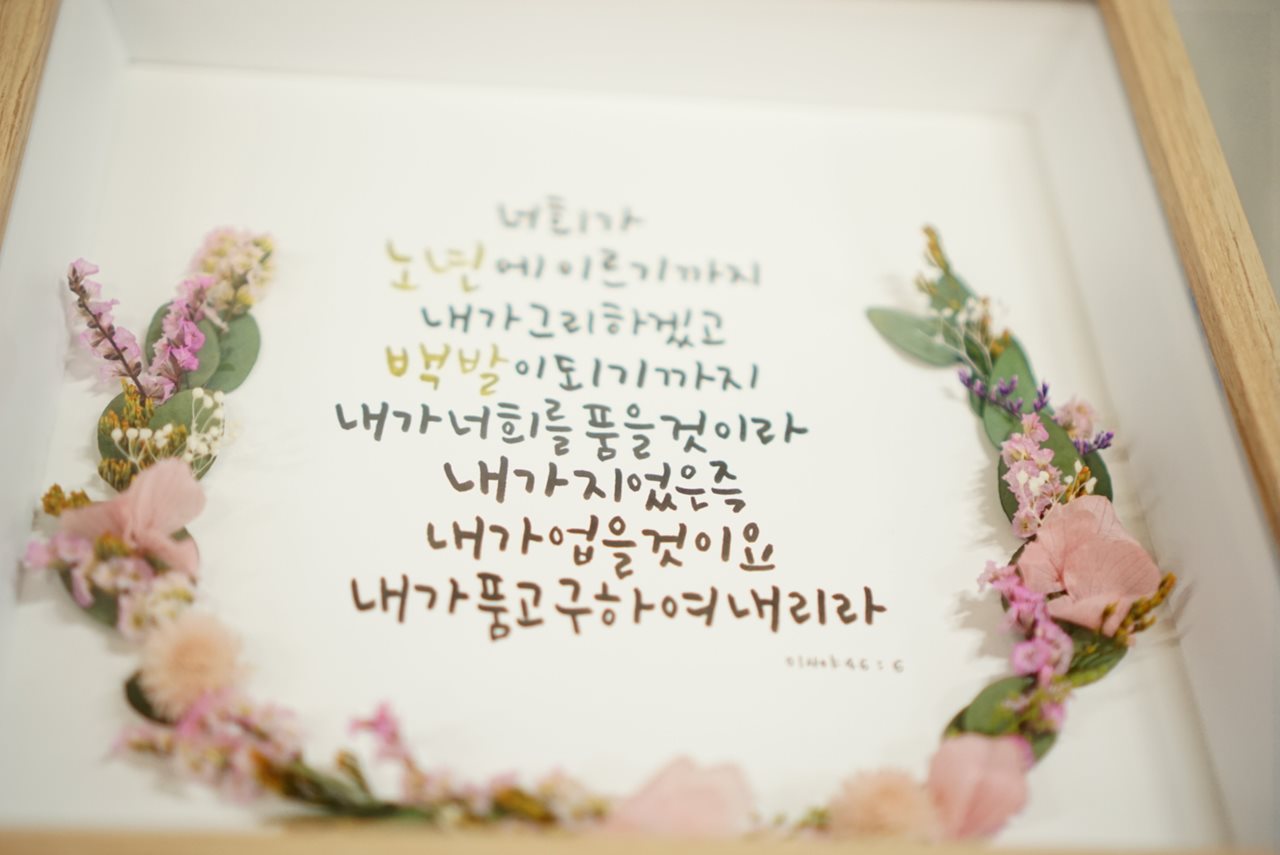 너희가
노년에 이르기까지
내가 그리하겠고
백발이 되기까지
내가 너희를 품을 것이라
내가 지었은즉
내가 업을 것이요
내가 품고 구하여 내리라
이사야 46 : 4